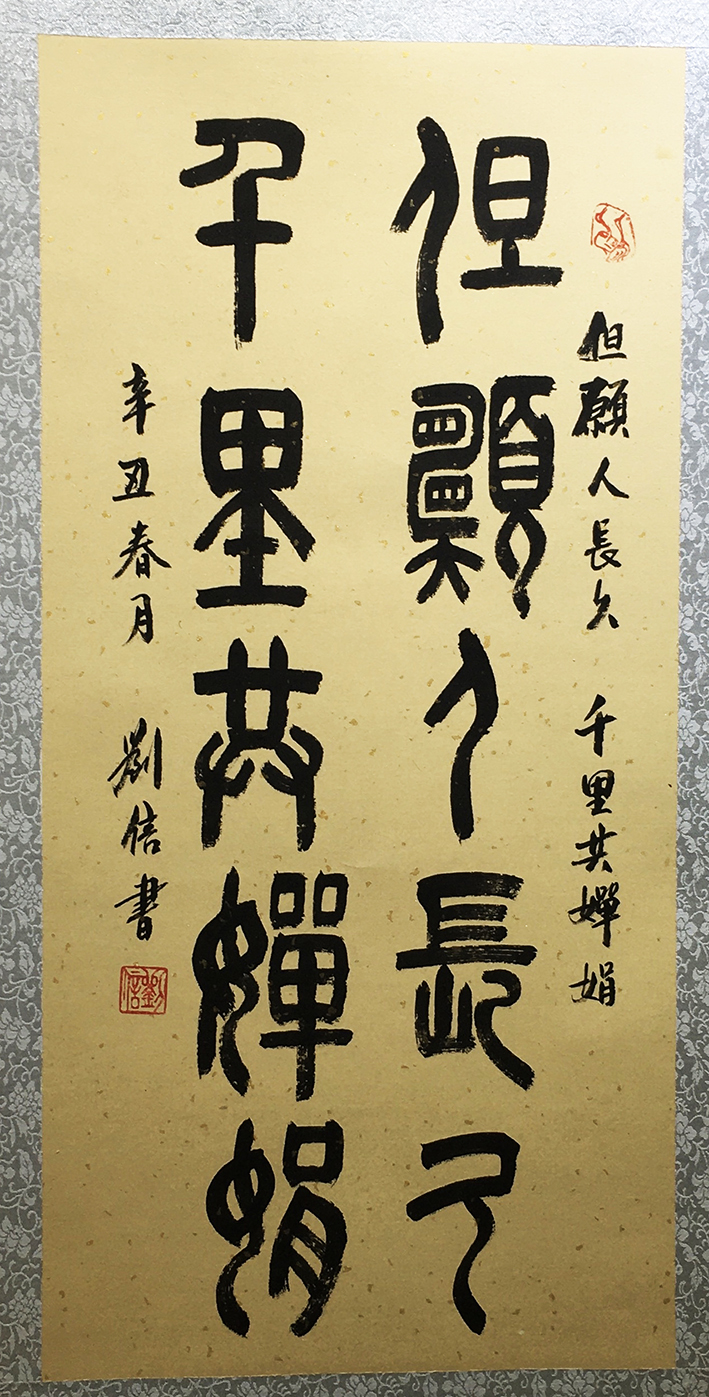 但願人長久 千里共嬋娟
但願人長久
千里共嬋娟
辛丑春月 劉信書
劉信